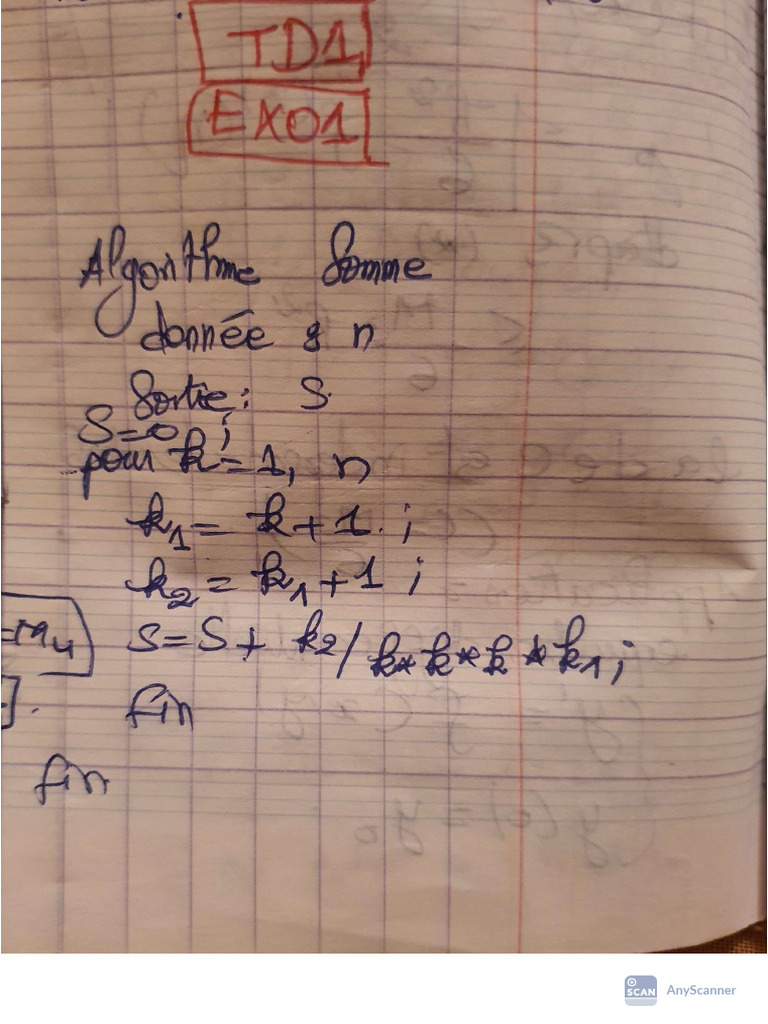 TD1
EXO1
Algorithme Somme
donnée : n
Sortie : S
S=0 ;
pour k=1, n
k1 = k+1 ;
k2 = k1+1 ;
=M4
S=S+ k2/k*k*k*k1;
fin
fin
SCAN AnyScanner